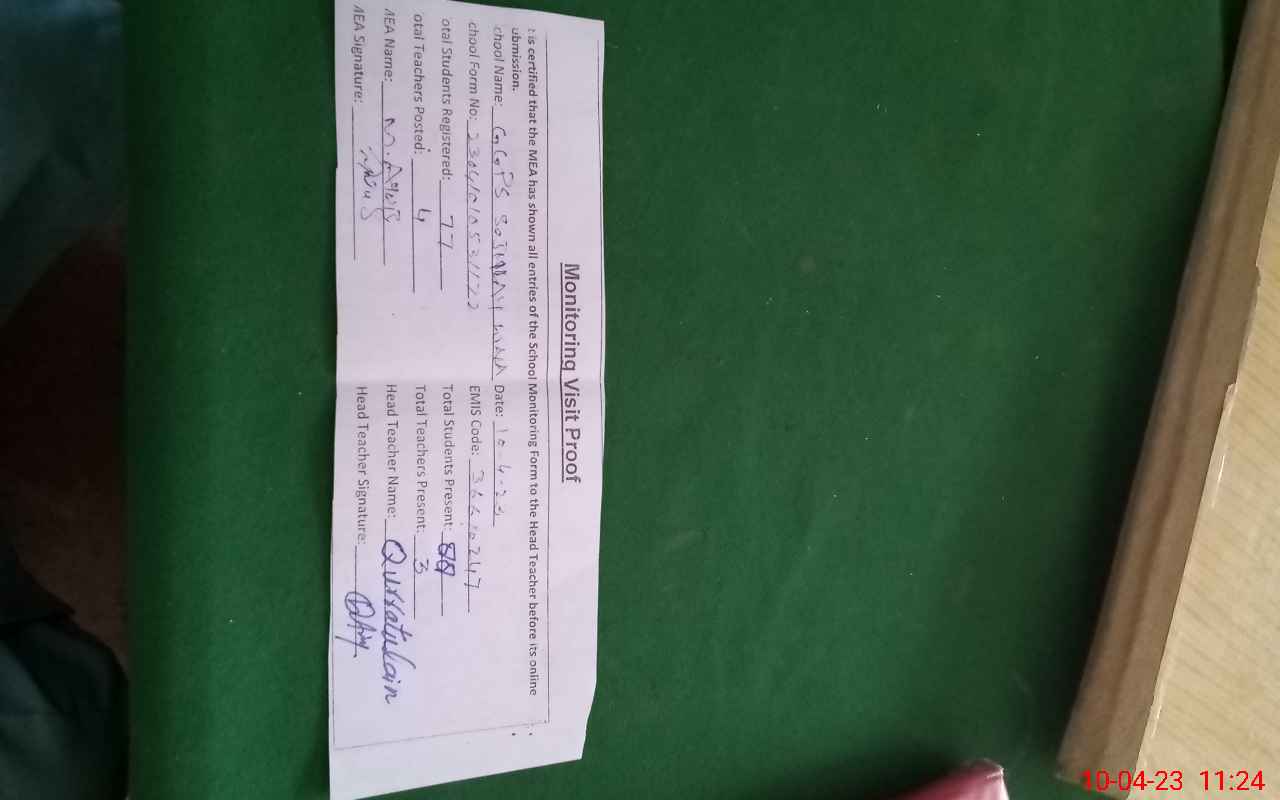 Monitoring Visit Proof
t is certified that the MEA has shown all entries of the School Monitoring Form to the Head Teacher before its online
ubmission.
chool Name: GGPS Date: 10-4-23
chool Form No: EMIS Code:
otal Students Registered: 77 Total Students Present:
otal Teachers Posted: 4 Total Teachers Present: 3
MEA Name: Head Teacher Name: Qurratulain
MEA Signature: Head Teacher Signature:
10-04-23 11:24